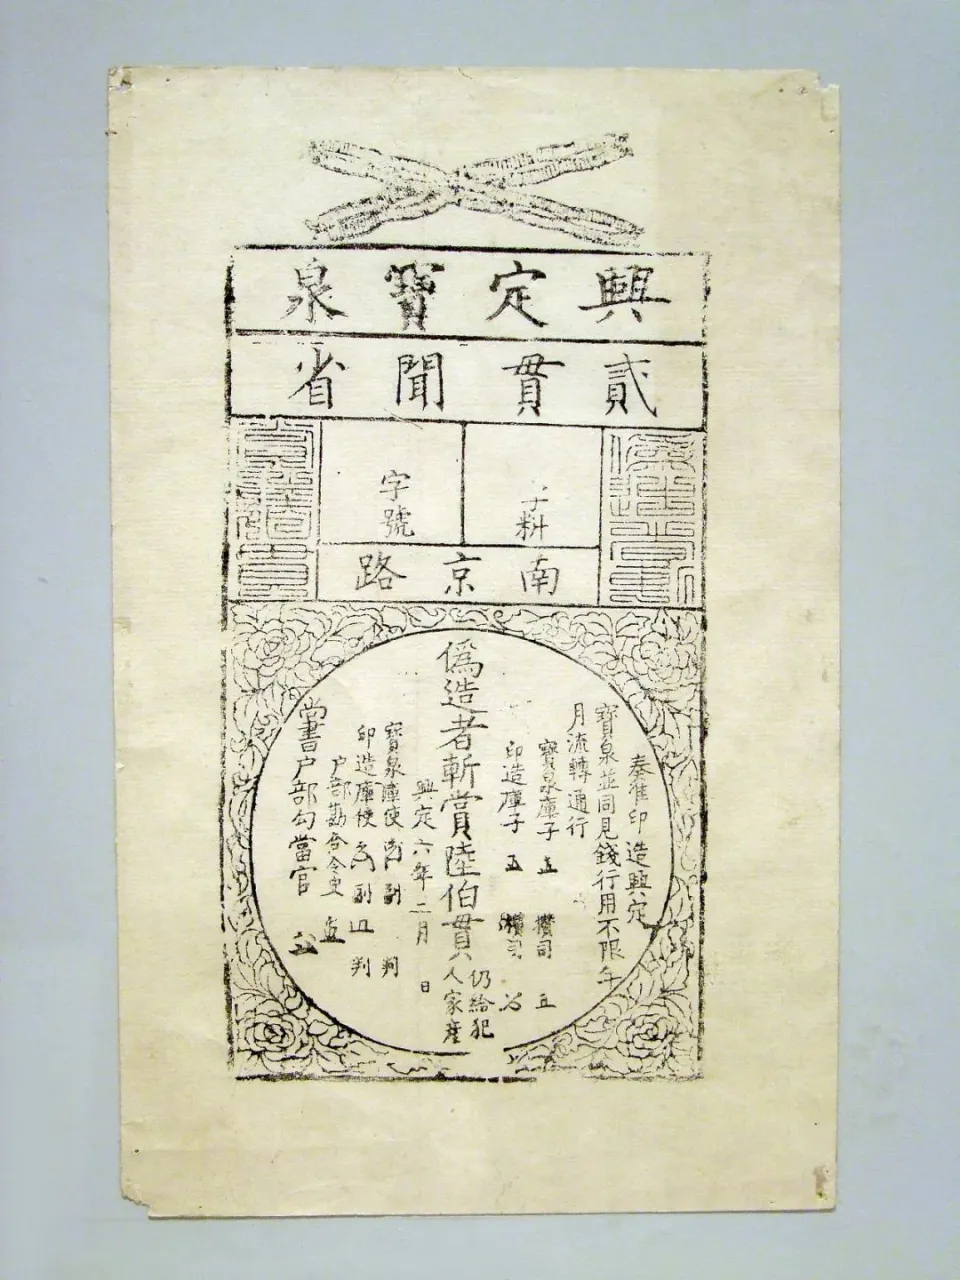 興定寶泉
貳貫聞省
字料
字號
南京路
奏准印造興定
寶泉並同見錢行用不限年
月流轉通行
寶泉庫子 攢司
印造庫子 攢司
偽造者斬賞陸伯貫仍給犯人家產
興定六年二月 日
寶泉庫使 副 判
印造庫使 副 判
户部勘合令史
尚書户部勾當官